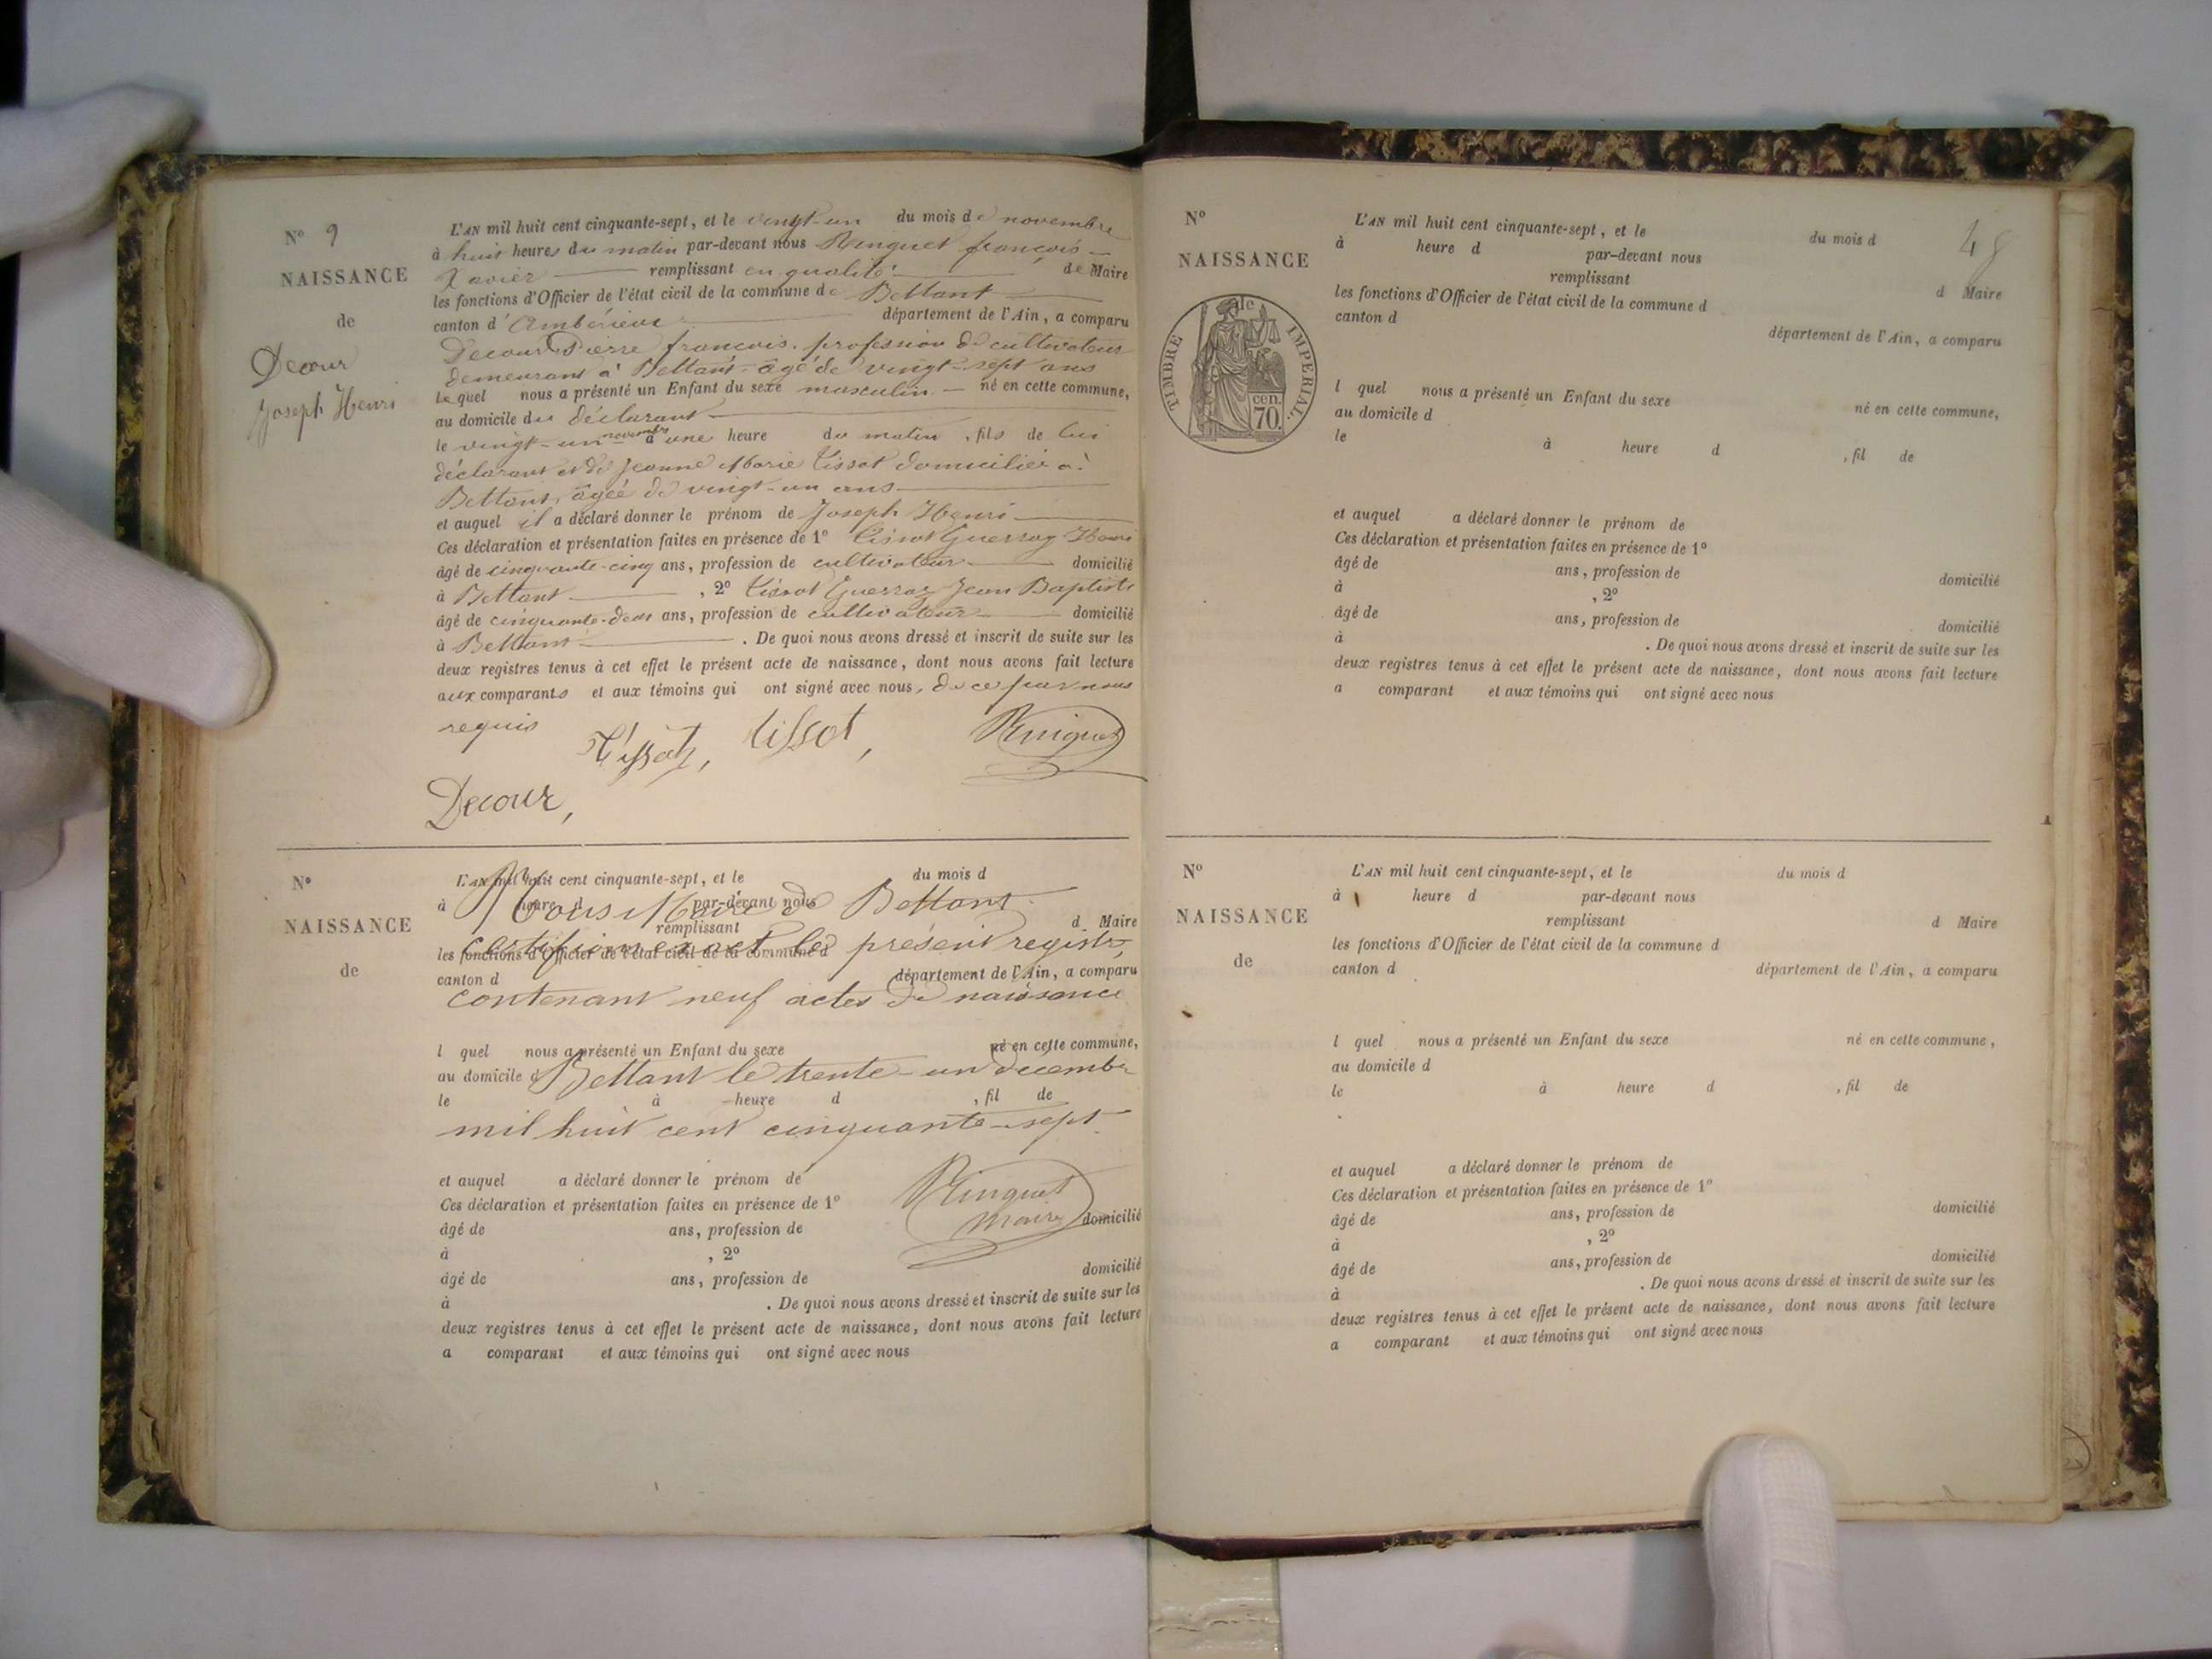 N° 9
NAISSANCE
de
Decour
Joseph Henri
L'AN mil huit cent cinquante-sept, et le vingt-un du mois de novembre
à huit heures du matin par-devant nous Ringuet françois
Xavier remplissant en qualité de Maire
les fonctions d'Officier de l'état civil de la commune de Bettant
canton d'Ambérieux département de l'Ain, a comparu
Decour Pierre francois. profession de cultivateur
demeurant à Bettant âgé de vingt-sept ans
lequel nous a présenté un Enfant du sexe masculin né en cette commune,
au domicile du déclarant
le vingt-un novembre à une heure du matin, fils de lui
déclarant et de Jeanne Marie Tissot domiciliée à
Bettant, âgée de vingt-un ans
et auquel il a déclaré donner le prénom de Joseph Henri
Ces déclaration et présentation faites en présence de 1° Tissot Guerraz Henri
âgé de cinquante-cinq ans, profession de cultivateur domicilié
à Bettant, 2° Tissot Guerraz Jean Baptiste
âgé de cinquante-deux ans, profession de cultivateur domicilié
à Bettant. De quoi nous avons dressé et inscrit de suite sur les
deux registres tenus à cet effet le présent acte de naissance, dont nous avons fait lecture
aux comparants et aux témoins qui ont signé avec nous, de ce par nous
requis
Tissot, tissot, Ringuet
Decour,
N°
NAISSANCE
de
L'AN mil huit cent cinquante-sept, et le du mois d
à heure d par-devant nous
Nous Maire de Bettant
remplissant d Maire
certifions exact le présent registre,
les fonctions d'Officier de l'état civil de la commune d
canton d département de l'Ain, a comparu
contenant neuf actes de naissance
l quel nous a présenté un Enfant du sexe né en cette commune,
au domicile d
Bettant le trente-un décembre
le à heure d , fil de
mil huit cent cinquante-sept
et auquel a déclaré donner le prénom de
Ringuet
Ces déclaration et présentation faites en présence de 1°
maire
âgé de ans, profession de domicilié
à , 2°
âgé de ans, profession de domicilié
à . De quoi nous avons dressé et inscrit de suite sur les
deux registres tenus à cet effet le présent acte de naissance, dont nous avons fait lecture
a comparant et aux témoins qui ont signé avec nous
48
N°
NAISSANCE
de
TIMBRE IMPERIAL.
cen.
70.
L'AN mil huit cent cinquante-sept, et le du mois d
à heure d par-devant nous
remplissant d Maire
les fonctions d'Officier de l'état civil de la commune d
canton d département de l'Ain, a comparu
l quel nous a présenté un Enfant du sexe né en cette commune,
au domicile d
le à heure d , fil de
et auquel a déclaré donner le prénom de
Ces déclaration et présentation faites en présence de 1°
âgé de ans, profession de domicilié
à , 2°
âgé de ans, profession de domicilié
à . De quoi nous avons dressé et inscrit de suite sur les
deux registres tenus à cet effet le présent acte de naissance, dont nous avons fait lecture
a comparant et aux témoins qui ont signé avec nous
N°
NAISSANCE
de
L'AN mil huit cent cinquante-sept, et le du mois d
à heure d par-devant nous
remplissant d Maire
les fonctions d'Officier de l'état civil de la commune d
canton d département de l'Ain, a comparu
l quel nous a présenté un Enfant du sexe né en cette commune,
au domicile d
le à heure d , fil de
et auquel a déclaré donner le prénom de
Ces déclaration et présentation faites en présence de 1°
âgé de ans, profession de domicilié
à , 2°
âgé de ans, profession de domicilié
à . De quoi nous avons dressé et inscrit de suite sur les
deux registres tenus à cet effet le présent acte de naissance, dont nous avons fait lecture
a comparant et aux témoins qui ont signé avec nous